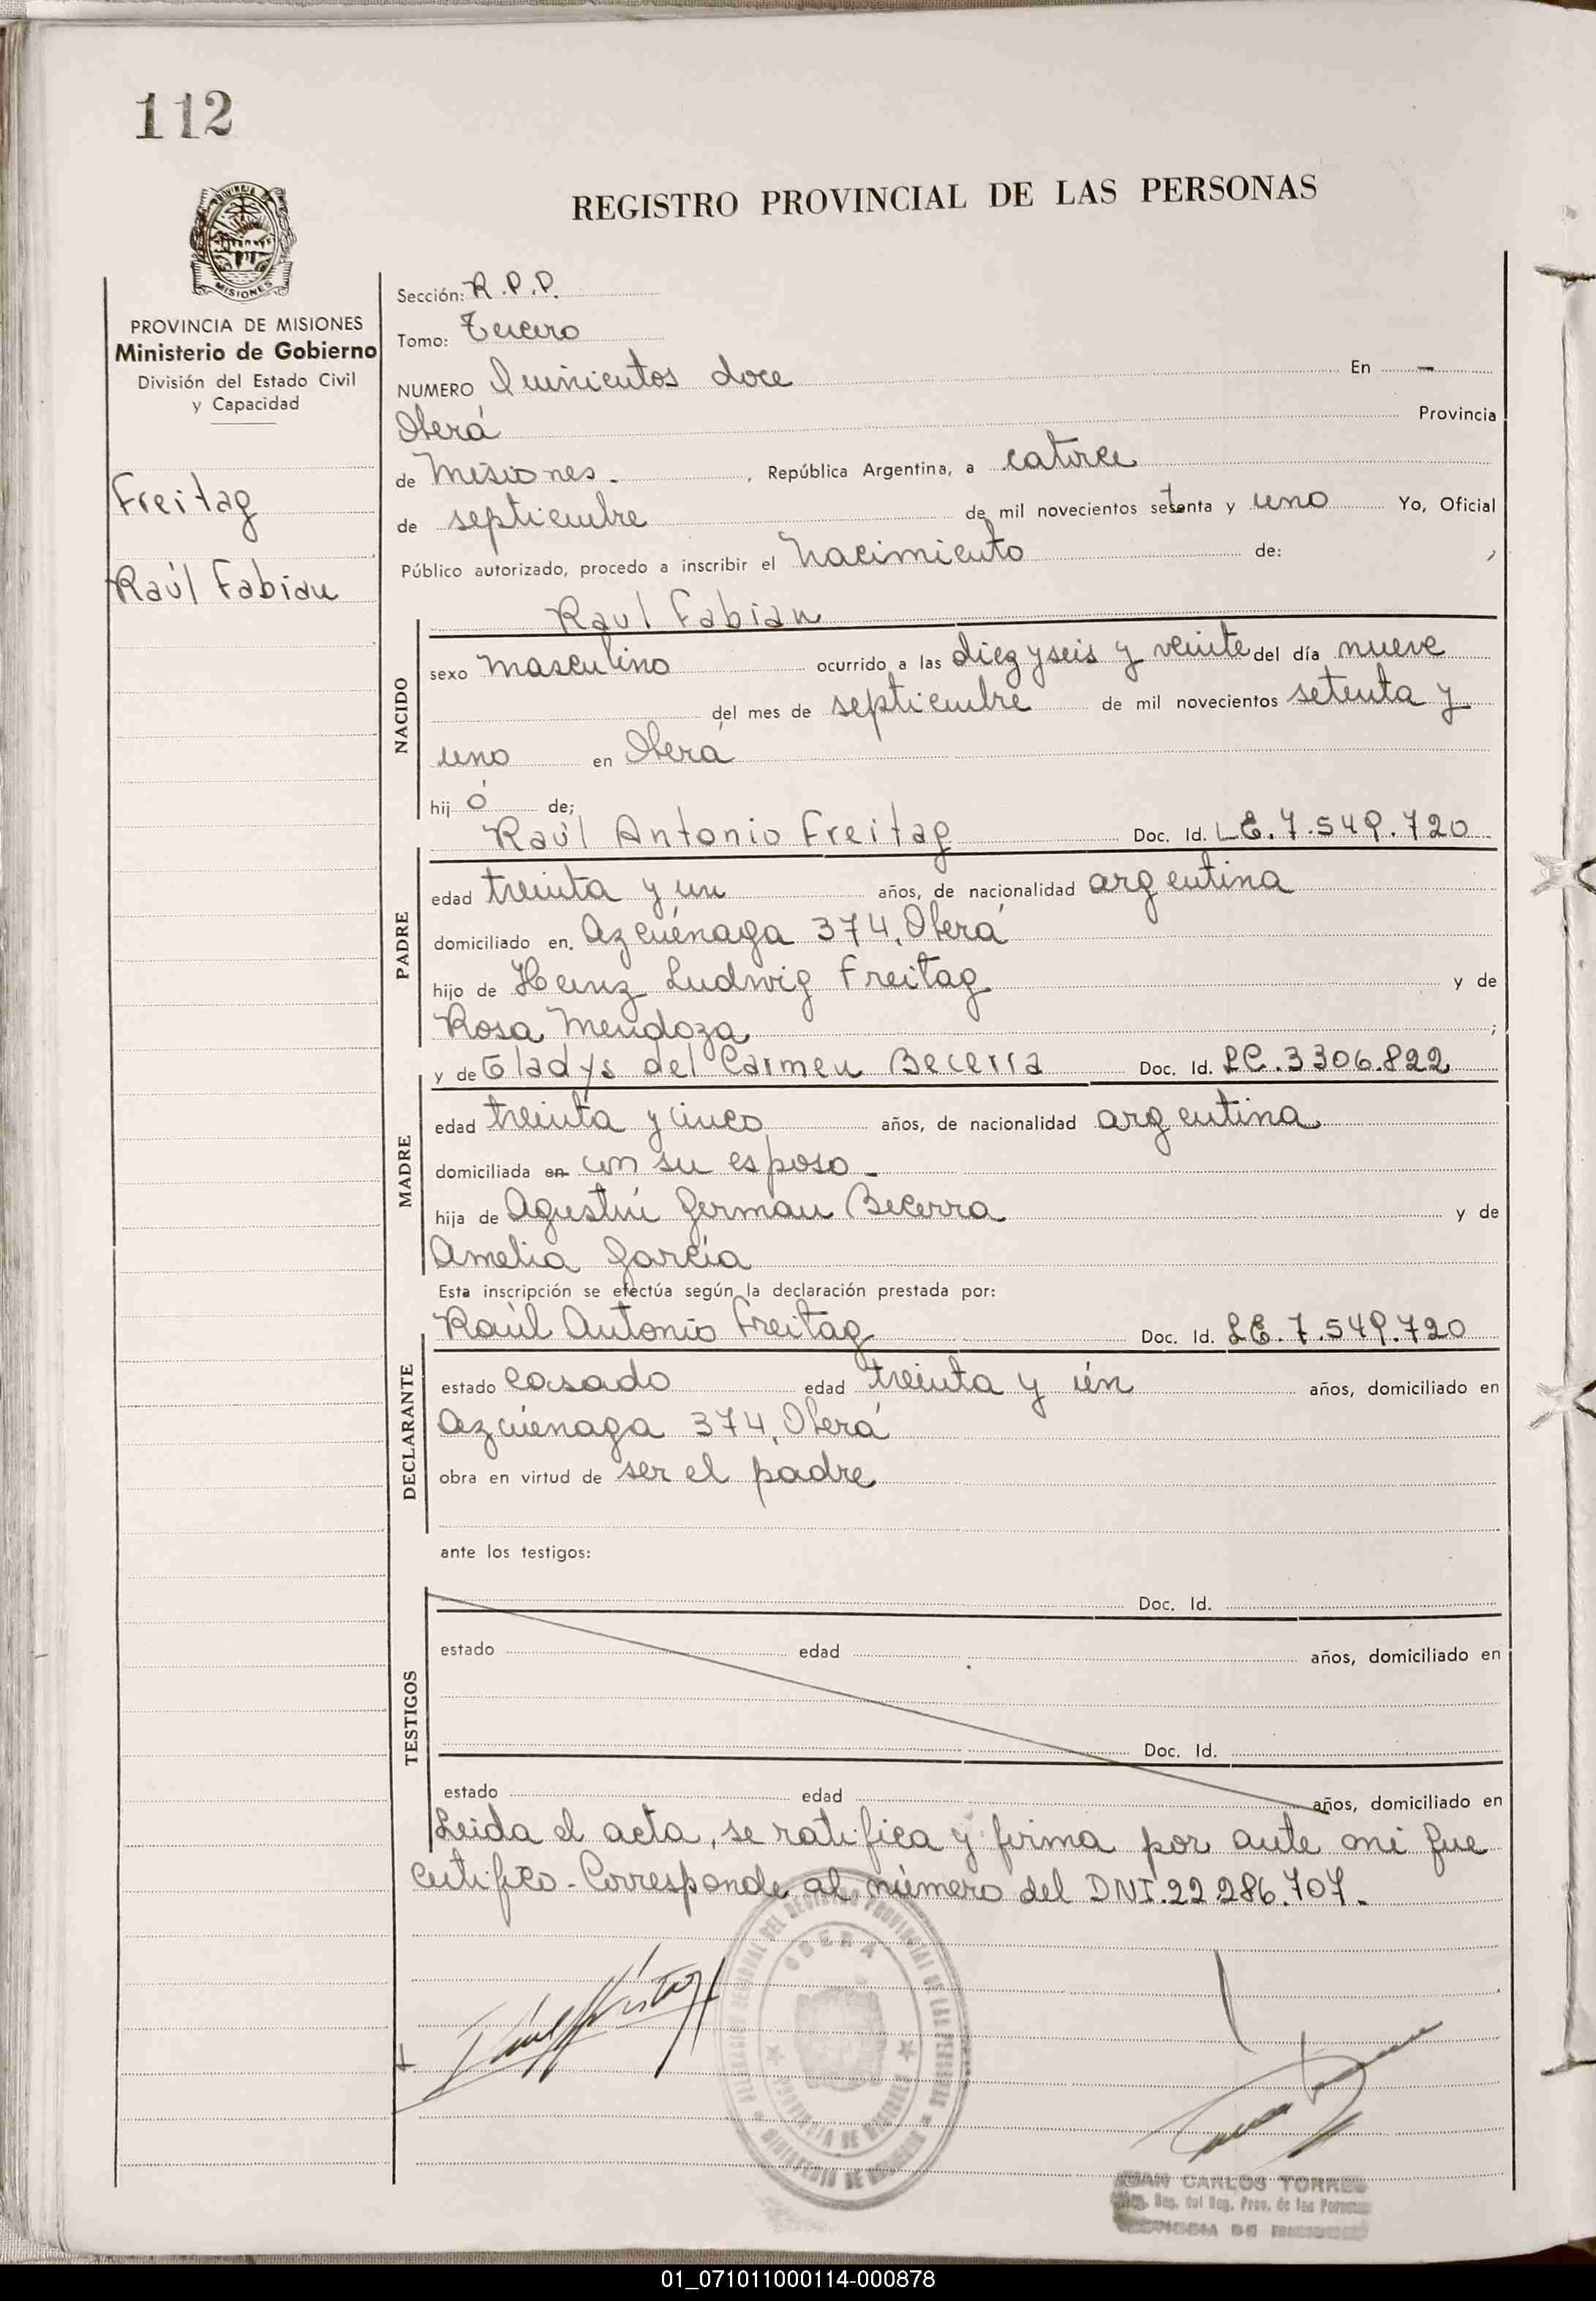 112
REGISTRO PROVINCIAL DE LAS PERSONAS
MISIONES
PROVINCIA DE MISIONES
Ministerio de Gobierno
División del Estado Civil
y Capacidad
Freitag
Raúl Fabian
Sección: R.P.P.
Tomo: Tercero
NUMERO Quinientos doce En —
Oberá Provincia
de Misiones. , República Argentina, a catorce
de septiembre de mil novecientos setenta y uno Yo, Oficial
Público autorizado, procedo a inscribir el Nacimiento de:
Raul Fabian
NACIDO
sexo masculino ocurrido a las diez y seis y veinte del día nueve
del mes de septiembre de mil novecientos setenta y
uno en Oberá
hij o de;
Raúl Antonio Freitag Doc. Id. LE.7.549.720
PADRE
edad treinta y un años, de nacionalidad argentina
domiciliado en. Azcuénaga 374, Oberá
hijo de Heinz Ludwig Freitag y de
Rosa Mendoza ;
y de Gladys del Carmen Becerra Doc. Id. LC.3306.822
MADRE
edad treinta y cinco años, de nacionalidad argentina
domiciliada en con su esposo -
hija de Agustín German Becerra y de
Amelia García
Esta inscripción se efectúa según la declaración prestada por:
Raúl Antonio Freitag Doc. Id. LE.7.549.720
DECLARANTE
estado casado edad treinta y ún años, domiciliado en
Azcuénaga 374, Oberá
obra en virtud de ser el padre
ante los testigos:
Doc. Id.
TESTIGOS
estado edad años, domiciliado en
Doc. Id.
estado edad años, domiciliado en
Leida el acta, se ratifica y firma por ante mi que
certifico - Corresponde al número del DNI.22 286.707.
OBERA
PROVINCIA DE MISIONES
JUAN CARLOS TORRES
01_071011000114-000878